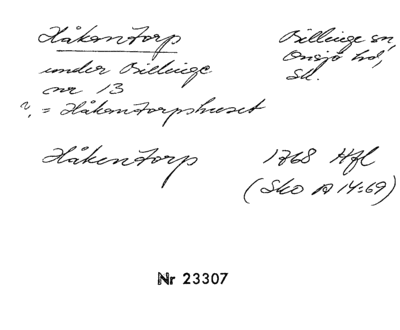 Håkentorp
Billinge sn,
Onsjö hd,
Sk.
under Billinge
nr 13
?, = Håkentorpshuset
Håkentorp 1768 Hfl
(Sko A 14:69)
Nr 23307